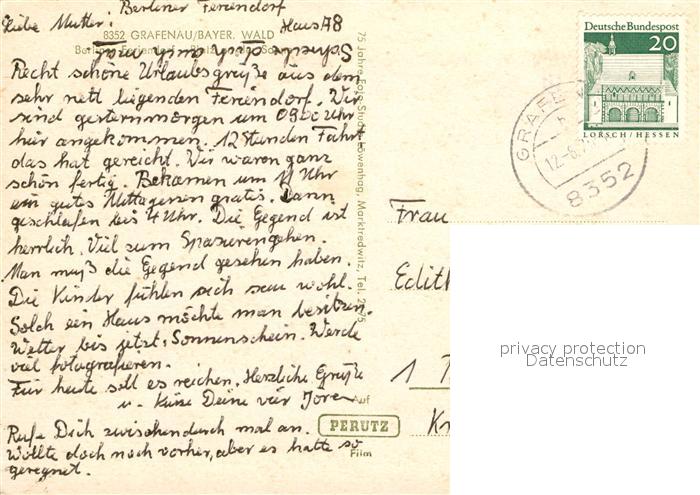 Berliner Feriendorf
Liebe Mutter! Haus A8
8352 GRAFENAU/BAYER. WALD
Schicke doch mal
Recht schöne Urlaubsgrüße aus dem
sehr nett liegenden Feriendorf. Wir
sind gesternmorgen um 0900 Uhr
hier angekommen. 12 Stunden Fahrt
das hat gereicht. Wir waren ganz
schön fertig. Bekamen um 11 Uhr
ein gutes Mittagessen gratis. Dann
geschlafen bis 4 Uhr. Die Gegend ist
herrlich. Viel zum Spazierengehen.
Man muß die Gegend gesehen haben.
Die Kinder fühlen sich sau wohl.
Solch ein Haus möchte man besitzen.
Wetter bis jetzt: Sonnenschein. Werde
viel fotografieren.
Für heute soll es reichen. Herzliche Grüße
u. Küsse Deine vier Jören
Rufe Dich zwischendurch mal an.
Wollte doch noch vorher, aber es hatte so
geregnet.
75 Jahre Foto-Studio Löwenhag, Marktredwitz, Tel.
Auf
PERUTZ
Film
Deutsche Bundespost
20
LORSCH/HESSEN
GRAFE
12-8
8352
Frau
Edith
1
privacy protection
Datenschutz